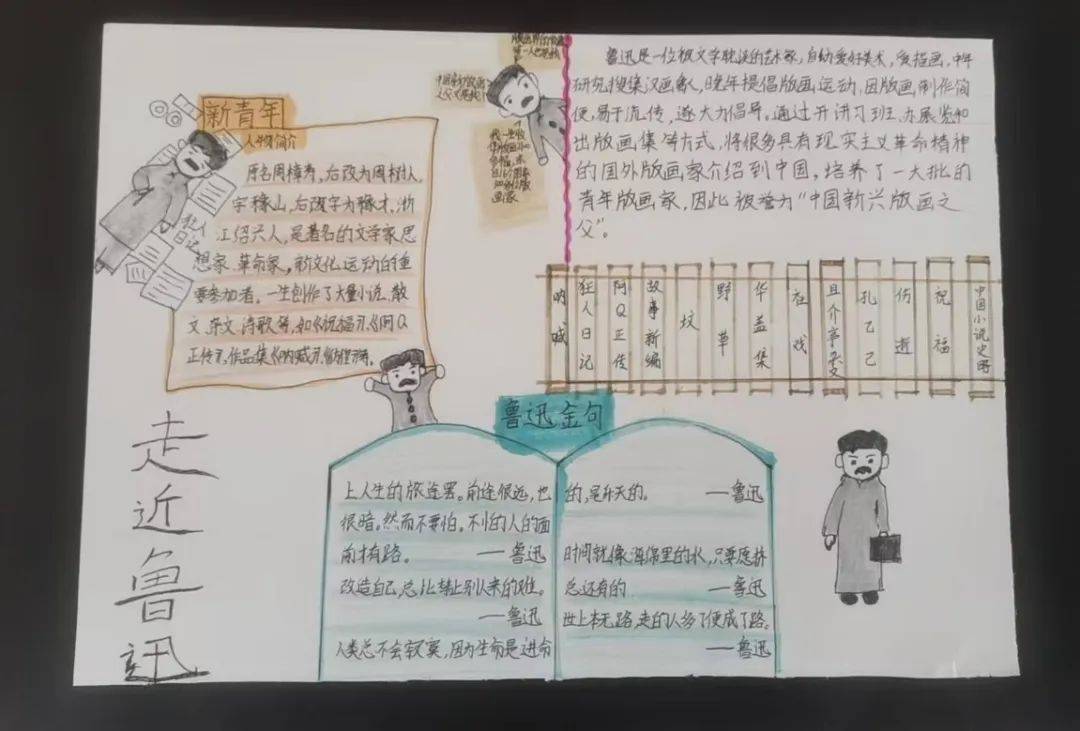 新青年
人物简介
原名周樟寿,后改为周树人,
字豫山,后改字为豫才,浙
江绍兴人,是著名的文学家思
想家、革命家,新文化运动的重
要参加者。一生创作了大量小说、散
文、杂文、诗歌等,如《祝福》《阿Q
正传》,作品集《呐喊》《彷徨》等。
狂人
日记
中国新兴版画
之父《是我》
我一生收
画家
鲁迅是一位被文学耽误的艺术家,自幼爱好美术,爱描画,中年
研究搜集汉画像,晚年提倡版画运动,因版画制作简
便,易于流传,遂大力倡导。通过开讲习班、办展览和
出版画集等方式,将很多具有现实主义革命精神
的国外版画家介绍到中国,培养了一大批的
青年版画家,因此被誉为“中国新兴版画之
父”。
呐喊
狂人日记
阿Q正传
故事新编
坟
野草
华盖集
社戏
且介亭杂文
孔乙己
伤逝
祝福
中国小说史略
鲁迅金句
上人生的旅途罢。前途很远,也
很暗。然而不要怕。不怕的人的面
前才有路。 ——鲁迅
改造自己,总比禁止别人来的难。
——鲁迅
人类总不会寂寞,因为生命是进命
的,是乐天的。 ——鲁迅
时间就像海绵里的水,只要愿挤
总还有的 ——鲁迅
世上本无路,走的人多了便成了路。
——鲁迅
走近鲁迅